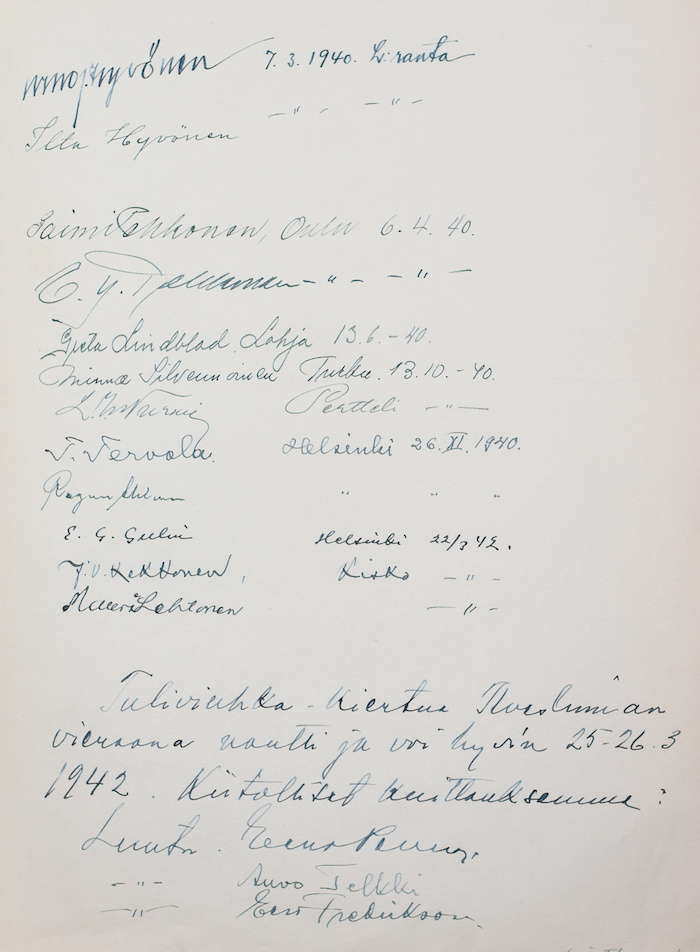 Hyvönen 7.3.1940. L:ranta
Ilta Hyvönen -"- -"-
Saimi Pekkonen, Oulu 6.4.40.
-"- -"-
Greta Lindblad. Lohja 13.6.-40.
Minna Silvennoinen Turku. 13.10.-40.
Pertteli -"-
T. Tervola. Helsinki 26.XI.1940.
" " "
E. G. Gulin Helsinki 22/3 42.
J.V. Kekkonen, Kisko -"-
Lehtonen -"-
Tulivieuhka - kiertue
vieraana nautti ja voi hyvin 25-26.3
1942. Kiitolliset kuittauksemme:
Eero
-"- Arvo Telkki
-"- Eero Fredrikson.